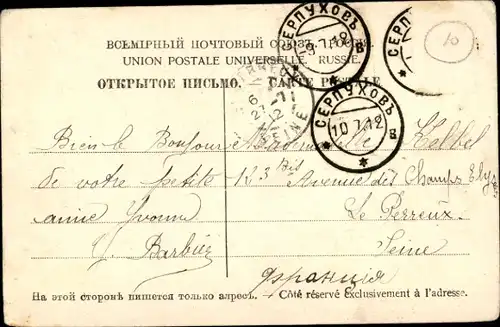 ВСЕМІРНЫЙ ПОЧТОВЫЙ СОЮЗЪ. РОССІЯ.
UNION POSTALE UNIVERSELLE. RUSSIE.
ОТКРЫТОЕ ПИСЬМО. CARTE POSTALE.
СЕРПУХОВЪ
-9.7.12
В
СЕРПУХОВЪ
10.7.12
В
СЕРПУХОВЪ
10
SEINE
Bien le Bonjour
de votre petite
amie Yvonne
Y Barbiez
Mademoiselle Kelbel
123 Bis Avenue des Champs Elys
Le Perreux
Seine
Франція
На этой сторонѣ пишется только адресъ. — Côté réservé exclusivement à l'adresse.